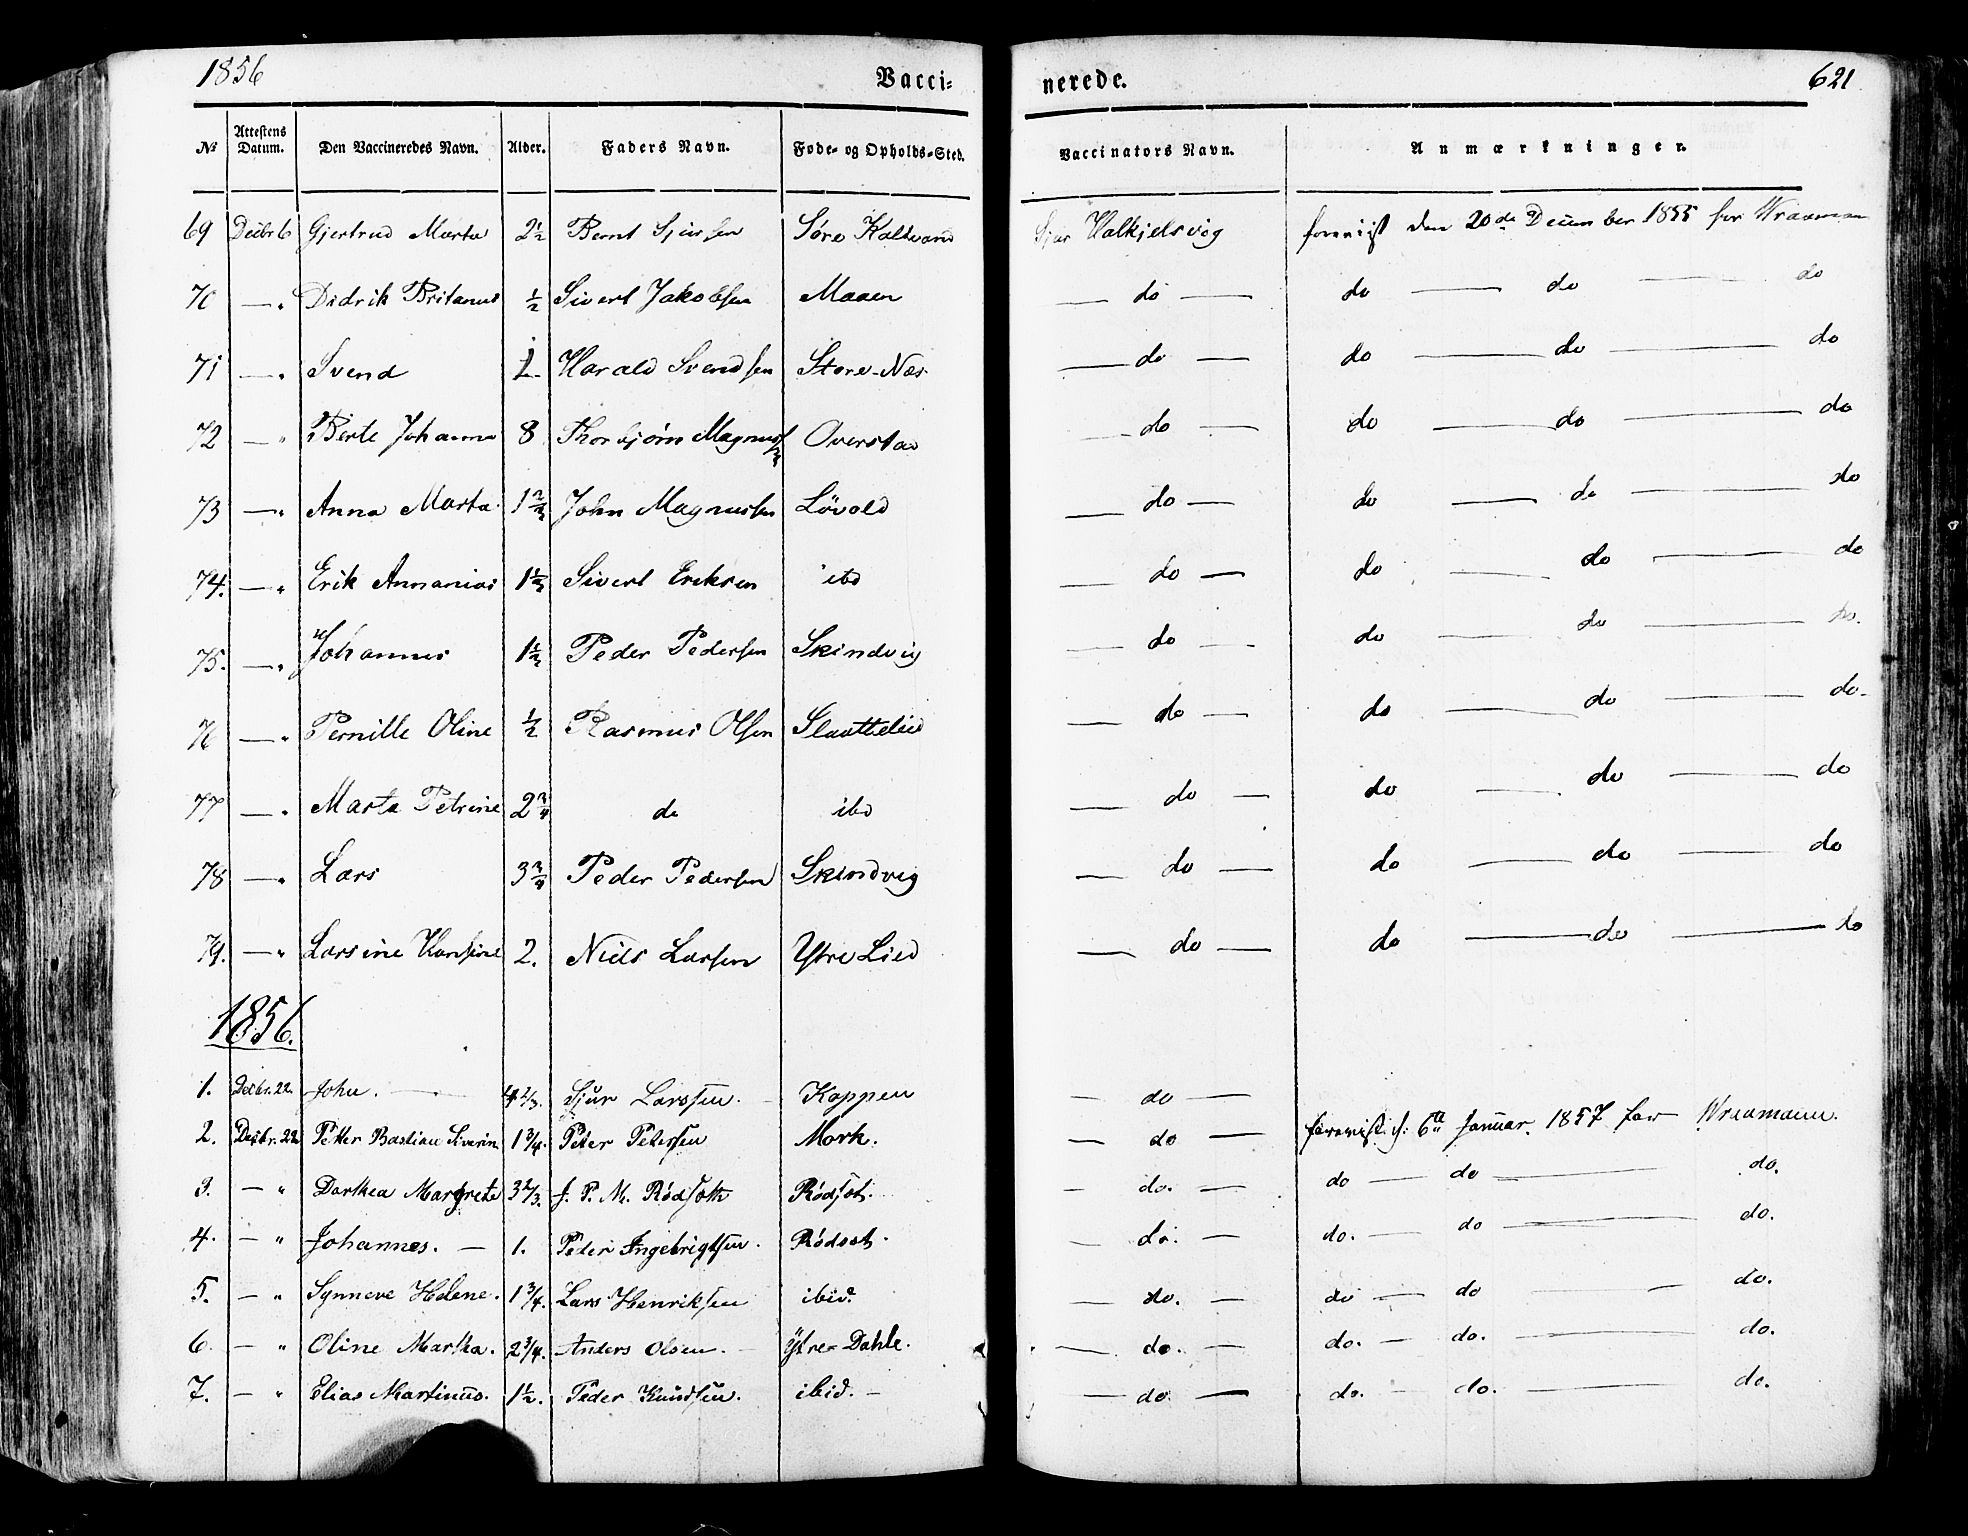 1856 Vacci- nerede. 621
No Attestens Datum. Den Vaccineredes Navn. Alder. Faders Navn. Føde- og Opholds-Sted. Vaccinators Navn. Anmærkninger.
69 Decbr 6 Gjertrud Marta 2½ Bernt Sjursen Søre Kaltvand Sjur Halkjelsvig foreviist den 20de December 1855 for
70 — " Didrik Britanus ½ Sivert Jakobsen Maaen — do — do — do — do
71 — " Svend 1 Harald Svendsen Store-Næs — do — do — do — do
72 — " Berte Johanna 8 Thorbjørn Magnussen Overstad — do — do — do — do
73 — " Anna Marta 1 2/3 John Magnussen Løvold — do — do — do — do
74. — " Erik Annanias 1½ Sivert Eriksen ibd — do — do — do — do
75. — " Johannes 1½ Peder Pedersen Skindvig — do — do — do — do.
76 — " Pernille Oline ½ Rasmus Olsen Slaattelied — do — do — do — do-
77 — " Marta Petrine 2¾ do ibd — do — do — do — do
78 — " Lars 3¾ Peder Pedersen Skindvig — do — do — do — do
79. — " Larsine Hansine 2. Niels Larsen Ytre Lied — do — do — do — do
1856.
1. Decbr. 22 John. — Sjur Larssen. — Koppen — do —
2. Decbr. 22 Petter Bastian Siverin 1¾ Peter Petersen Mork. — do — forevist d: 6te Januar. 1857 for
3. — " Dorthea Margrete 3 2/3. J. P. M. Rødsoth Rødsot. — do. — do — do — do.
4. — " Johannes. — 1. Peder Ingebrigtsen. Rødsot. — do. — do. — do — do.
5. — " Synneve Helene. 1¾. Lars Henriksen ibid. — do. — do — do — do.
6. — " Oline Martha. 2¾. Anders Olsen. — Ytre-Dahle. — do. — do. — do. — do.
7. — " Elias Martinus. 1½. Peder Knudsen. ibid. — — do. — do. — do. — do.